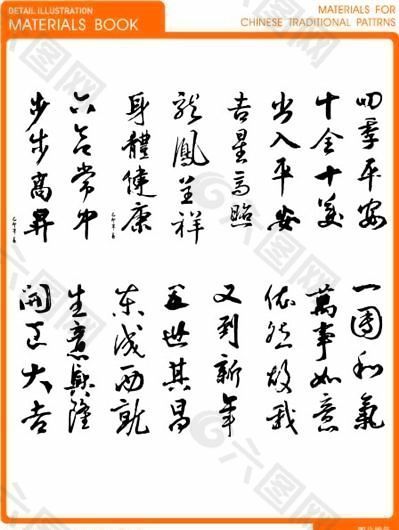 DETAIL ILLUSTRATION
MATERIALS BOOK
MATERIALS FOR
CHINESE TRADITIONAL PATTRNS
四季平安
十全十美
出入平安
吉星高照
龍鳳呈祥
身體健康
六合常中
步步高昇
一團和氣
萬事如意
依然故我
又到新年
五世其昌
東成西就
生意興隆
開正大吉
六图网